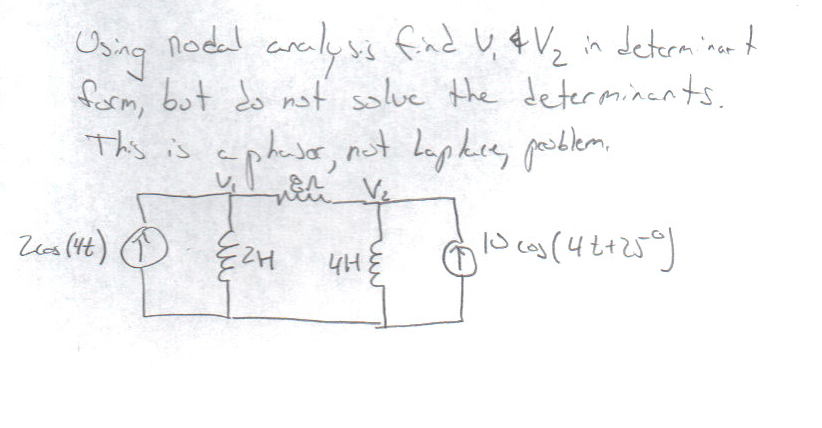 Using nodal analysis find V₁ & V₂ in determinant
form, but do not solve the determinants.
This is a phasor, not Laplace, problem.
V₁ 8Ω V₂
2cos(4t) 2H 4H 10 cos(4t+25°)